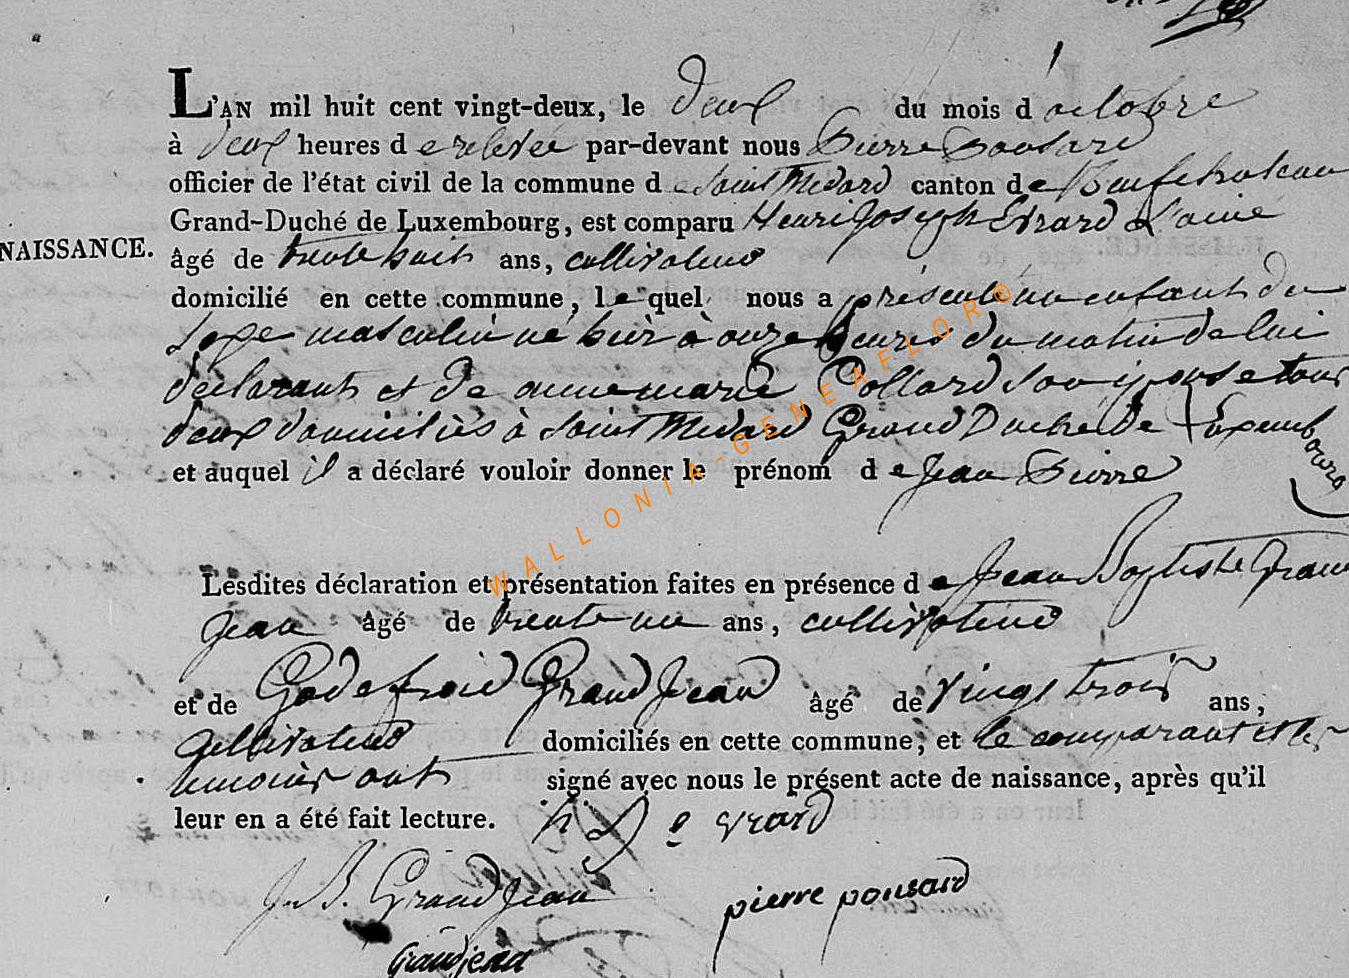 L'AN mil huit cent vingt-deux, le deux du mois d'octobre
à deux heures de relevée par-devant nous Pierre Pousard
officier de l'état civil de la commune de Saint Médard canton de Neufchateau
Grand-Duché de Luxembourg, est comparu Henri Joseph Evrard L'ainé
NAISSANCE.
âgé de trente huit ans, cultivateur
domicilié en cette commune, lequel nous a présenté un enfant du
sexe masculin né hier à onze heures du matin de lui
déclarant et de anne marie Collard son epouse tous
deux domiciliés à Saint Médard Grand Duché de Luxembourg
et auquel il a déclaré vouloir donner le prénom de Jean Pierre
Lesdites déclaration et présentation faites en présence de Jean Baptiste Grand
Jean âgé de trente un ans, cultivateur
et de Godefroid Grand Jean âgé de vingt trois ans,
Cultivateur domiciliés en cette commune, et le comparant et les
temoins ont signé avec nous le présent acte de naissance, après qu'il
leur en a été fait lecture. h J evrard
J. B. Grand Jean
pierre pousard
Grandjean
WALLONIA-GENEAFLORO